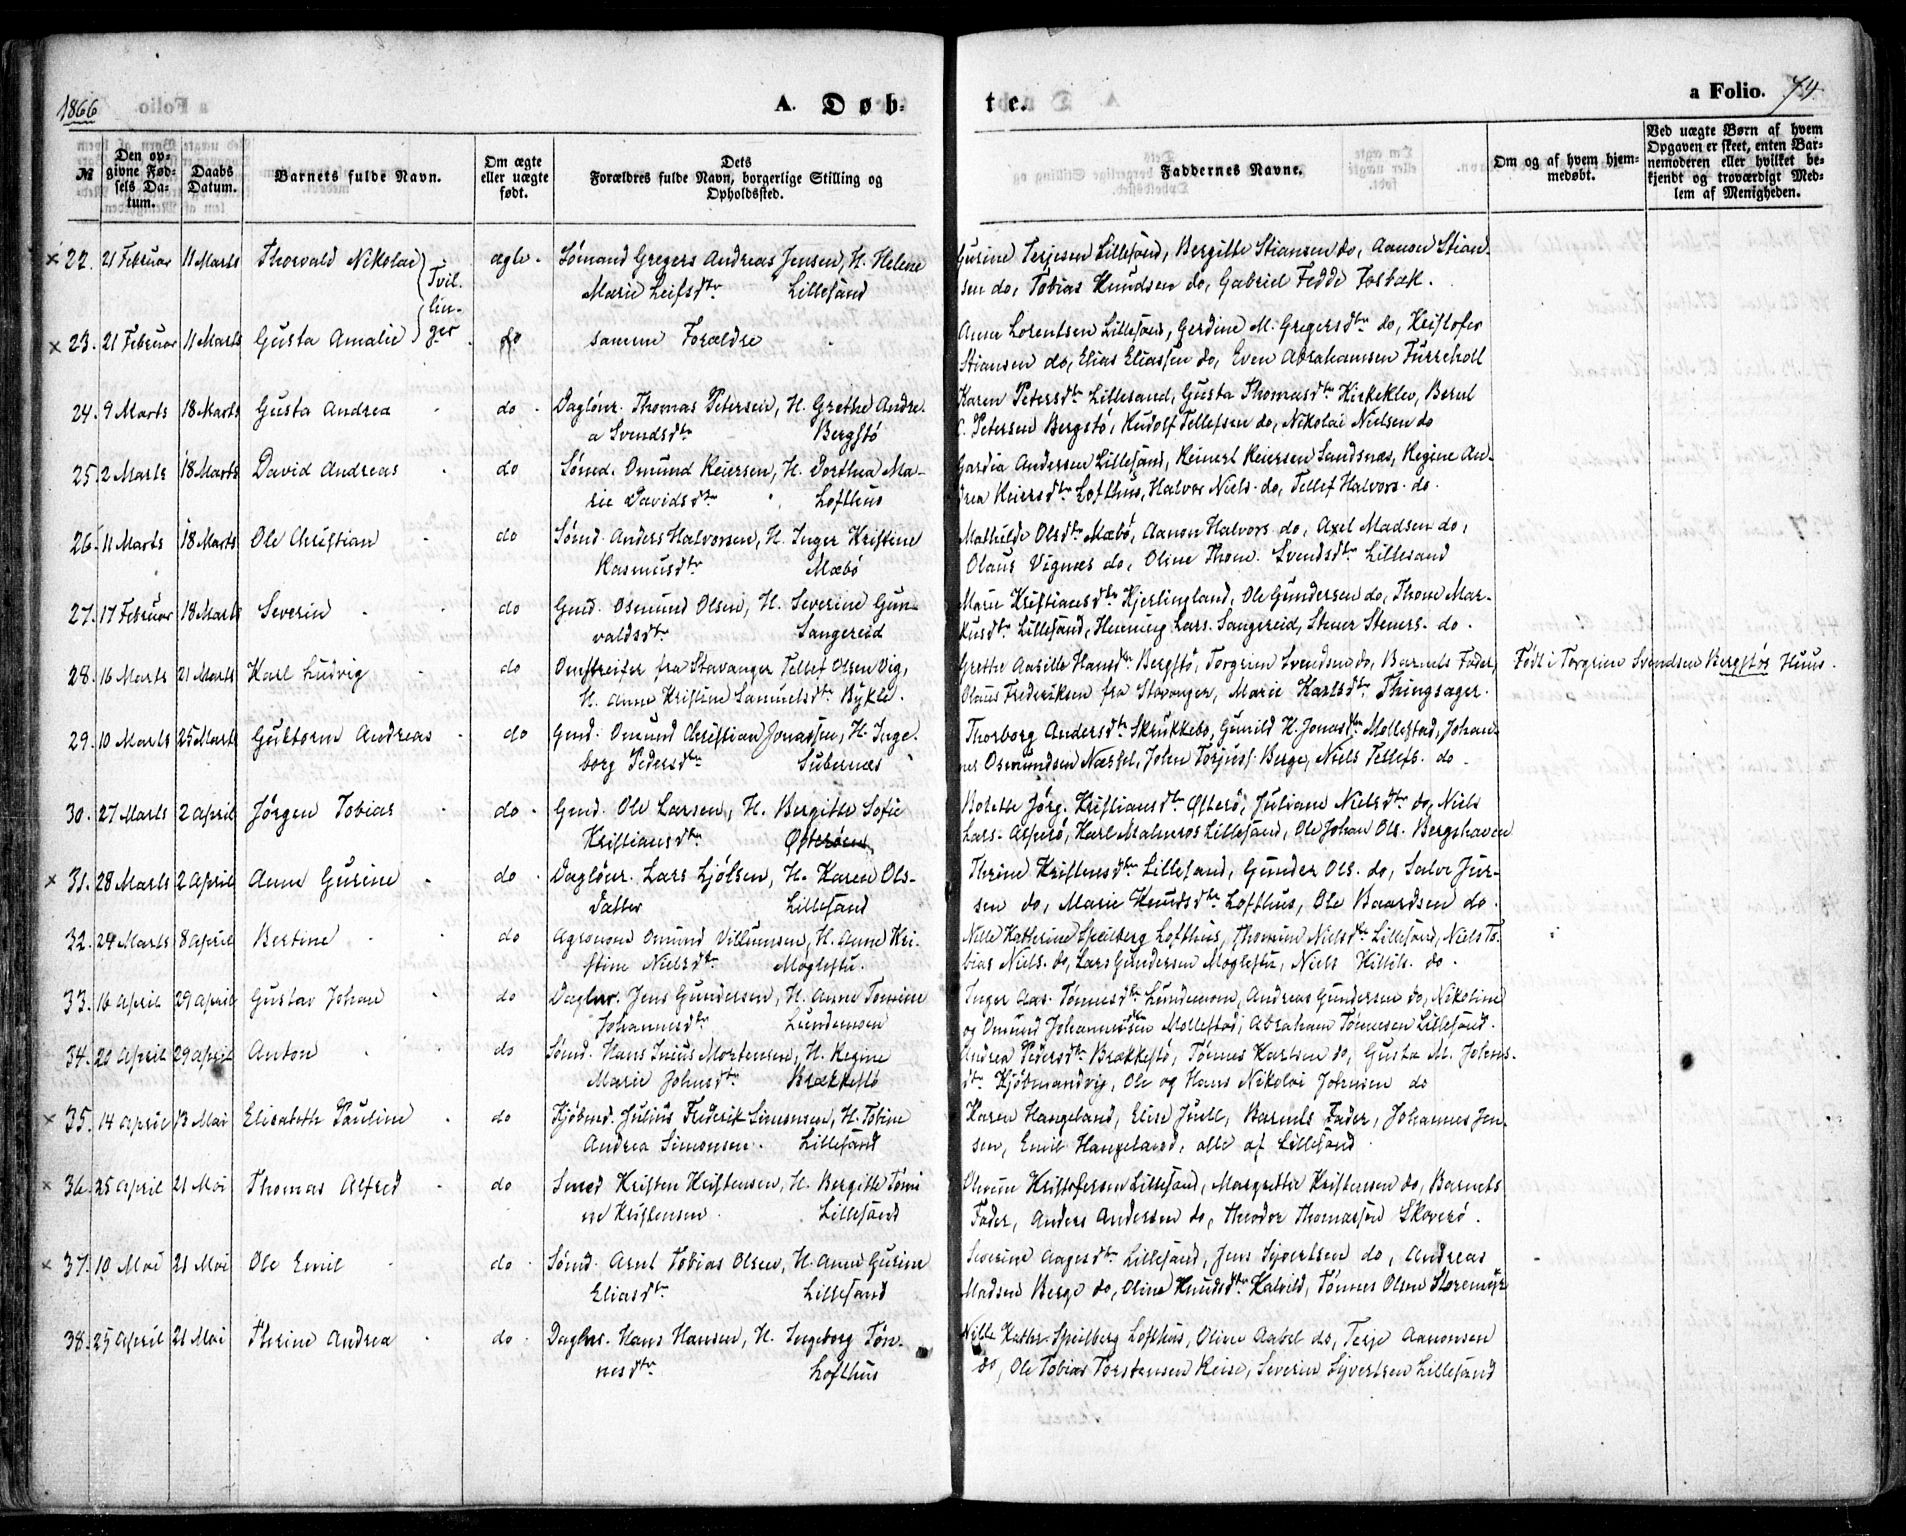 1866
A. Døb-
te.
a Folio. 74
№
Den op-
givne Fød-
sels Da-
tum.
Daabs
Datum.
Barnets fulde Navn.
Om ægte
eller uægte
født.
Dets
Forældres fulde Navn, borgerlige Stilling og
Opholdssted.
Faddernes Navne.
Om og af hvem hjem-
medøbt.
Ved uægte Børn af hvem
Opgaven er skeet, enten Bar-
nemoderen eller hvilket be-
kjendt og troværdigt Med-
lem af Menigheden.
× 22. 21 Februar 11 Marts Thorvald Nikolai Tvil- ægte. Sømand Gregers Andreas Jensen, H. Helene
Marie Leifsdtr Lillesand
Gurine Terjesen Lillesand, Bergitte Stiansen do, Aanon Stian-
sen do, Tobias Knudsen do, Gabriel Fedde Fosbæk.
lin-
× 23. 21 Februar 11 Marts Gusta Amalie ger. do samme Forældre
Anne Lorentsen Lillesand, Gerdine M. Gregersdtr do, Kristofer
Stiansen do, Elias Eliassen do, Even Abrahamsen Furreholl
24. 9 Marts 18 Marts Gusta Andrea do. Daglønr. Thomas Petersen, H. Grethe Andre-
a Svendsdtr Bergstø
Karen Petersdtr Lillesand, Gusta Thomasdtr Kirkeklev, Bernt
C. Petersen Bergstø, Rudolf Tellefsen do, Nikolai Nielsen do
25. 2 Marts 18 Marts David Andreas do Sømd. Omund Reiersen, H. Dorthea Ma-
rie Davidsdtr Lofthus
Gardia Andersen Lillesand, Reinert Reiersen Sandsnæs, Regine An-
drea Reiersdtr Lofthus, Halvor Niels. do, Tellef Halvors. do.
26. 11 Marts 18 Marts Ole Christian do Sømd. Anders Halvorsen, H. Inger Kristine
Rasmusdtr Mæbø
Mathilde Olsdtr Mæbø, Aanon Halvors do, Axel Madsen do,
Olaus Vignæs do, Oline Thom. Svendsdtr Lillesand
27. 17 Februar 18 Marts Severin do Gmd. Osmund Olsen, H. Severine Gun-
valdsdtr Sangereid
Marie Kristiansdtr Kjerlingland, Ole Gundersen do, Thone Mar-
kusdtr Lillesand, Henning Lars. Sangereid, Stener Steners. do.
28. 16 Marts 21 Marts Karl Ludvig do Omstreifer fra Stavanger Tellef Olsen Vig,
H. Anne Kristine Samuelsdtr Bykle.
Grethe Aasille Hansdtr Bergstø, Torgrim Svendsen do, Barnets Fader,
Olaus Frederiksen fra Stavanger, Marie Karlsdtr Thingsager.
Født i Torgrim Svendsen Bergstøs Huus.
29. 10 Marts 25 Marts Guttorm Andreas do Gmd. Omund Christian Jonassen, H. Inge-
borg Pedersdtr Subernæs
Thorborg Andersdtr Skrukkebo, Gunild H. Jonasdtr Mollestad, Johan-
nes Osmundsen Næssel, John Torjuss. Berge, Niels Tellefs. do.
30. 27 Marts 2 April Jørgen Tobias do. Gmd. Ole Larsen, H. Bergitte Sofie
Kristiansdtr Østerøen
Rosette Jørg. Kristiansdtr Østerø, Juliane Nielsdtr do, Niels
Lars. Asperø, Karl Malmros Lillesand, Ole Johan Ols. Bergshaven
× 31. 28 Marts 2 April Anne Gurine do. Daglønr. Lars Ljølsen, H. Karen Ols-
datter Lillesand
Thrine Kristensdtr Lillesand, Gunder Ols. do, Salve Jur-
sen do, Marie Knudsdtr Lofthus, Ole Baardsen do.
32. 24 Marts 8 April Bertine do Agronom Omund Villumsen, H. Anne Kri-
stine Nielsdtr Møglestu.
Nille Katherine Speilberg Lofthus, Thomine Nielsdtr Lillesand, Niels To-
bias Niels. do, Lars Gundersen Møglestu, Niels Hillils. do.
33. 16 April 29 April Gustav Johan do Daglnr. Jens Gundersen, H. Anne Tomine
Johannesdtr Lundemoen
Inger Aas. Tønnesdtr Lundemoen, Andreas Gundersen do, Nikoline
og Omund Johannessen Mollestad, Abraham Tønnesen Lillesand.
34. 20 April 29 April Anton do Sømd. Hans Inius Mortensen, H. Regine
Marie Johnsdtr Brækkestø
Andrea Pedersdtr Brækkestø, Tønnes Karlsen do, Gusta M. Johns-
dtr Kjøbmandvig, Ole og Hans Nikolai Johnsen do
× 35. 14 April 13 Mai Elisabeth Pauline do Kjøbmd. Julius Frederik Simonsen, H. Tobine
Andrea Simonsen. Lillesand
Karen Hangeland, Elise Juell, Barnets Fader, Johannes Jen-
sen, Emil Hangeland, alle af Lillesand
× 36. 25 April 21 Mai Thomas Alfred do Smed Kristen Kristensen, H. Bergitte Tomi-
ne Kristensen. Lillesand
Olevine Kristofersen Lillesand, Margrethe Kristensen do, Barnets
Fader, Anders Andersen do, Theodor Thomassen Skoverø.
× 37. 10 Mai 21 Mai Ole Emil do. Sømd. Arnt Tobias Olsen, H. Anne Gurine
Eliasdtr Lillesand
Severine Aagesdtr Lillesand, Jens Syvertsen do, Andreas
Madsen Berge do, Oline Knudsdtr Kalvild, Tønnes Olsen Storemyr
38. 25 April 21 Mai Thrine Andrea do. Daglnr. Hans Hansen, H. Ingeborg Tøn-
nesdtr Lofthus
Nille Kathr. Speilberg Lofthus, Oline Aabel do, Terje Aanonsen
do, Ole Tobias Torstensen Reise, Severin Syvertsen Lillesand